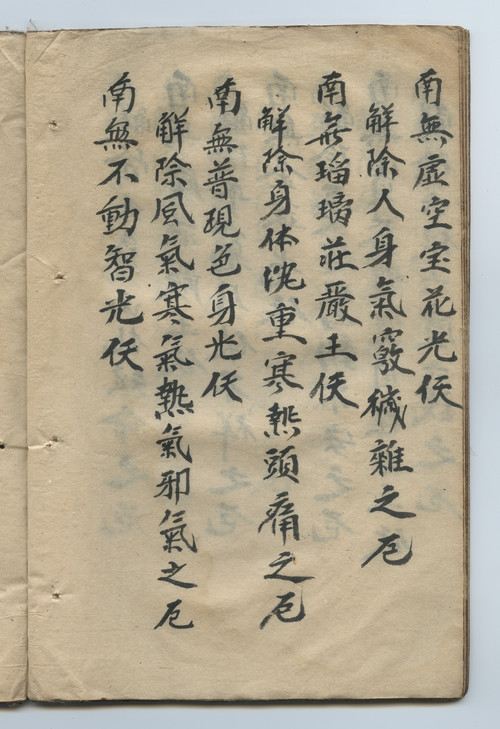 南無虛空宝花光伕
解除人身氣竅穢雜之厄
南無瑠璃莊嚴王伕
解除身体沈重寒熱頭痛之厄
南無普現色身光伕
解除風氣寒氣熱氣邪氣之厄
南無不動智光伕